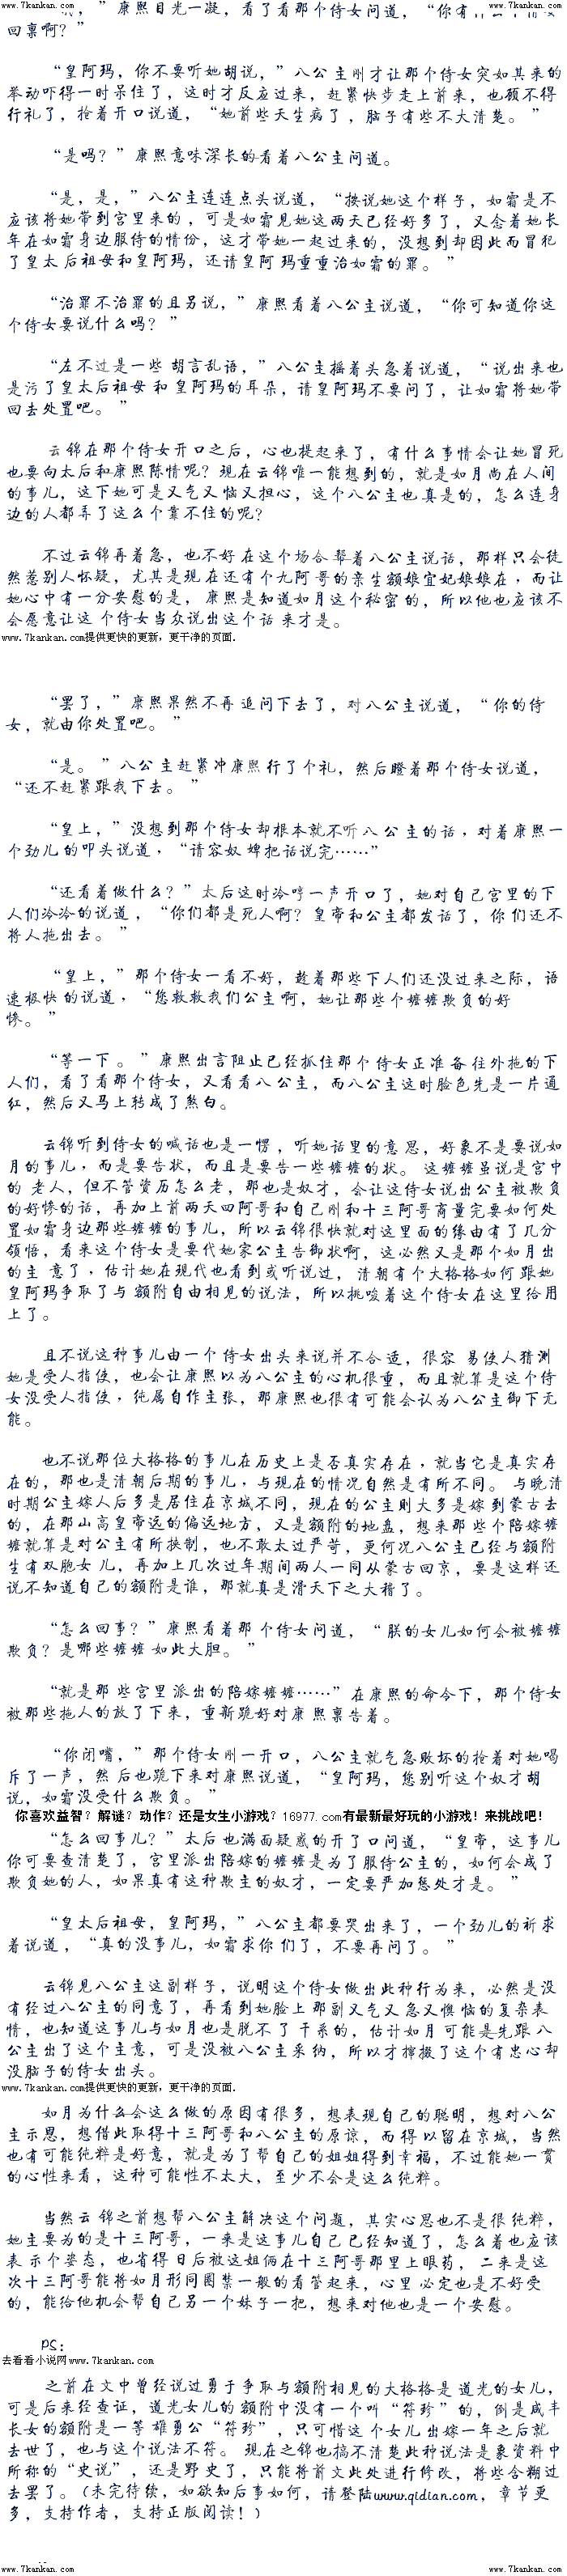 www.7kankan.com www.7kankan.com
”康熙目光一凝，看了看那个侍女问道，“你有什么事情要
回禀啊？”
“皇阿玛，你不要听她胡说，”八公主刚才让那个侍女突如其来的
举动吓得一时呆住了，这时才反应过来，赶紧快步走上前来，也顾不得
行礼了，抢着开口说道，“她前些天生病了，脑子有些不大清楚。”
“是吗？”康熙意味深长的看着八公主问道。
“是，是，”八公主连连点头说道，“按说她这个样子，如霜是不
应该将她带到宫里来的，可是如霜见她这两天已经好多了，又念着她长
年在如霜身边服侍的情份，这才带她一起过来的，没想到却因此而冒犯
了皇太后祖母和皇阿玛，还请皇阿玛重重治如霜的罪。”
“治罪不治罪的且另说，”康熙看着八公主说道，“你可知道你这
个侍女要说什么吗？”
“左不过是一些胡言乱语，”八公主摇着头急着说道，“说出来也
是污了皇太后祖母和皇阿玛的耳朵，请皇阿玛不要问了，让如霜将她带
回去处置吧。”
云锦在那个侍女开口之后，心也提起来了，有什么事情会让她冒死
也要向太后和康熙陈情呢？现在云锦唯一能想到的，就是如月尚在人间
的事儿，这下她可是又气又恼又担心，这个八公主也真是的，怎么连身
边的人都弄了这么个靠不住的呢？
不过云锦再着急，也不好在这个场合帮着八公主说话，那样只会徒
然惹别人怀疑，尤其是现在还有个九阿哥的亲生额娘宜妃娘娘在，而让
她心中有一分安慰的是，康熙是知道如月这个秘密的，所以他也应该不
会愿意让这个侍女当众说出这个话来才是。
www.7kankan.com提供更快的更新，更干净的页面.
“罢了，”康熙果然不再追问下去了，对八公主说道，“你的侍
女，就由你处置吧。”
“是。”八公主赶紧冲康熙行了个礼，然后瞪着那个侍女说道，
“还不赶紧跟我下去。”
“皇上，”没想到那个侍女却根本就不听八公主的话，对着康熙一
个劲儿的叩头说道，“请容奴婢把话说完……”
“还看着做什么？”太后这时冷哼一声开口了，她对自己宫里的下
人们冷冷的说道，“你们都是死人啊？皇帝和公主都发话了，你们还不
将人拖出去。”
“皇上，”那个侍女一看不好，趁着那些下人们还没过来之际，语
速极快的说道，“您救救我们公主啊，她让那些个嬷嬷欺负的好
惨。”
“等一下。”康熙出言阻止已经抓住那个侍女正准备往外拖的下
人们，看了看那个侍女，又看看八公主，而八公主这时脸色先是一片通
红，然后又马上转成了煞白。
云锦听到侍女的喊话也是一愣，听她话里的意思，好象不是要说如
月的事儿，而是要告状，而且是要告一些嬷嬷的状。这嬷嬷虽说是宫中
的老人，但不管资历怎么老，那也是奴才，会让这侍女说出公主被欺负
的好惨的话，再加上前两天四阿哥和自己刚和十三阿哥商量完要如何处
置如霜身边那些嬷嬷的事儿，所以云锦很快就对这里面的缘由有了几分
领悟，看来这个侍女是要代她家公主告御状啊，这必然又是那个如月出
的主意了，估计她在现代也看到或听说过，清朝有个大格格如何跟她
皇阿玛争取了与额附自由相见的说法，所以挑唆着这个侍女在这里给用
上了。
且不说这种事儿由一个侍女出头来说并不合适，很容易使人猜测
她是受人指使，也会让康熙以为八公主的心机很重，而且就算是这个侍
女没受人指使，纯属自作主张，那康熙也很有可能会认为八公主御下无
能。
也不说那位大格格的事儿在历史上是否真实存在，就当它是真实存
在的，那也是清朝后期的事儿，与现在的情况自然是有所不同。与晚清
时期公主嫁人后多是居住在京城不同，现在的公主则大多是嫁到蒙古去
的，在那山高皇帝远的偏远地方，又是额附的地盘，想来那些个陪嫁嬷
嬷就算是对公主有所挟制，也不敢太过严苛，更何况八公主已经与额附
生有双胞女儿，再加上几次过年期间两人一同从蒙古回京，要是这样还
说不知道自己的额附是谁，那就真是滑天下之大稽了。
“怎么回事？”康熙看着那个侍女问道，“朕的女儿如何会被嬷嬷
欺负？是哪些嬷嬷如此大胆。”
“就是那些宫里派出的陪嫁嬷嬷……”在康熙的命令下，那个侍女
被那些拖人的放了下来，重新跪好对康熙禀告着。
“你闭嘴，”那个侍女刚一开口，八公主就气急败坏的抢着对她喝
斥了一声，然后也跪下来对康熙说道，“皇阿玛，您别听这个奴才胡
说，如霜没受什么欺负。”
你喜欢益智？解谜？动作？还是女生小游戏？16977.com有最新最好玩的小游戏！来挑战吧！
“怎么回事儿？”太后也满面疑惑的开了口问道，“皇帝，这事儿
你可要查清楚了，宫里派出陪嫁的嬷嬷是为了服侍公主的，如何会成了
欺负她的人，如果真有这种欺主的奴才，一定要严加惩处才是。”
“皇太后祖母，皇阿玛，”八公主都要哭出来了，一个劲儿的祈求
着说道，“真的没事儿，如霜求你们了，不要再问了。”
云锦见八公主这副样子，说明这个侍女做出此种行为来，必然是没
有经过八公主的同意了，再看到她脸上那副又气又急又懊恼的复杂表
情，也知道这事儿与如月也是脱不了干系的，估计如月可能是先跟八
公主出了这个主意，可是没被八公主采纳，所以才撺掇了这个有忠心却
没脑子的侍女出头。
www.7kankan.com提供更快的更新，更干净的页面.
如月为什么会这么做的原因有很多，想表现自己的聪明，想对八公
主示恩，想借此取得十三阿哥和八公主的原谅，而得以留在京城，当然
也有可能纯粹是好意，就是为了帮自己的姐姐得到幸福，不过能她一贯
的心性来看，这种可能性不太大，至少不会是这么纯粹。
当然云锦之前想帮八公主解决这个问题，其实心思也不是很纯粹，
她主要为的是十三阿哥，一来是这事儿自己已经知道了，怎么着也应该
表示个姿态，也省得日后被这姐俩在十三阿哥那里上眼药，二来是这
次十三阿哥能将如月形同圈禁一般的看管起来，心里必定也是不好受
的，能给他机会帮自己另一个妹子一把，想来对他也是一个安慰。
PS：
去看看小说网www.7kankan.com
之前在文中曾经说过勇于争取与额附相见的大格格是道光的女儿，
可是后来经查证，道光女儿的额附中没有一个叫“符珍”的，倒是咸丰
长女的额附是一等雄勇公“符珍”，只可惜这个女儿出嫁一年之后就
去世了，也与这个说法不符。现在之锦也搞不清楚此种说法是象资料中
所称的“史说”，还是野史了，只能将前文此处进行修改，将些含糊过
去罢了。(未完待续，如欲知后事如何，请登陆www.qidian.com，章节更
多，支持作者，支持正版阅读！)
www.7kankan.com www.7kankan.com